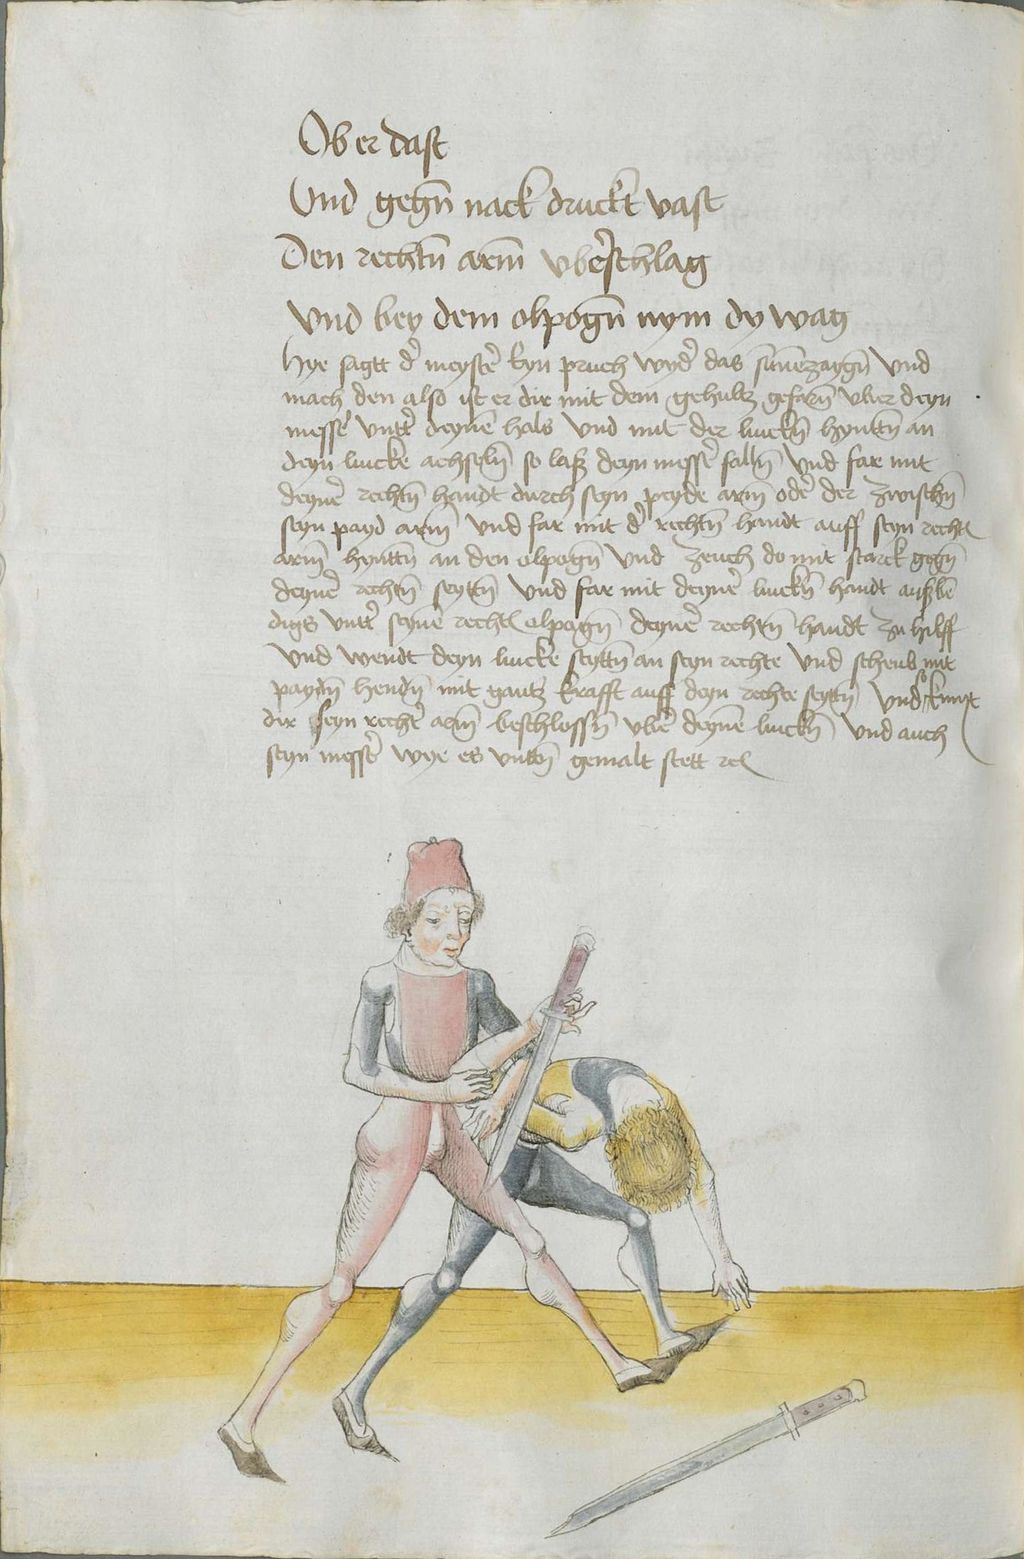 Ob er dast
Vnd gegñ nack druckt vast
Den rechtñ arm̃ vberschlag
Vnd bey dem elpogñ nym dy wag
Hye sagtt der meyster eyn pruch wyder das Vnd
mach den also ist er dir mit dem gehultz gefarñ vber deyn
messer vntter deynẽ hals Vnd mit der linckñ hynttñ an
deyn lincke achselñ so laß deyn messer fallñ Vnd far mit
deyner rechtñ handt durch seyn peyde arm̃ oder der zwischñ
seyn payd arm̃ Vnd far mit der rechtñ handt auff seyn recht
arm̃ hynttñ an den elpogñ Vnd zeuch do mit starck gegñ
deyner rechtñ seyttñ Vnd far mit deyner linckñ handt außbẽ
digs vntter seynẽ recht elpogñ deyner rechtñ handt zu hilff
Vnd wendt deyn lincke seyttñ an seyn rechte Vnd scheub mit
paydñ hendñ mit gantz krafft auff deyn rechte seyttñ Vnd so kumt
dir seyn rechter arm̃ beschlossñ vber deynẽ linckñ Vnd auch
seyn messer wye es vnttñ gemalt stett